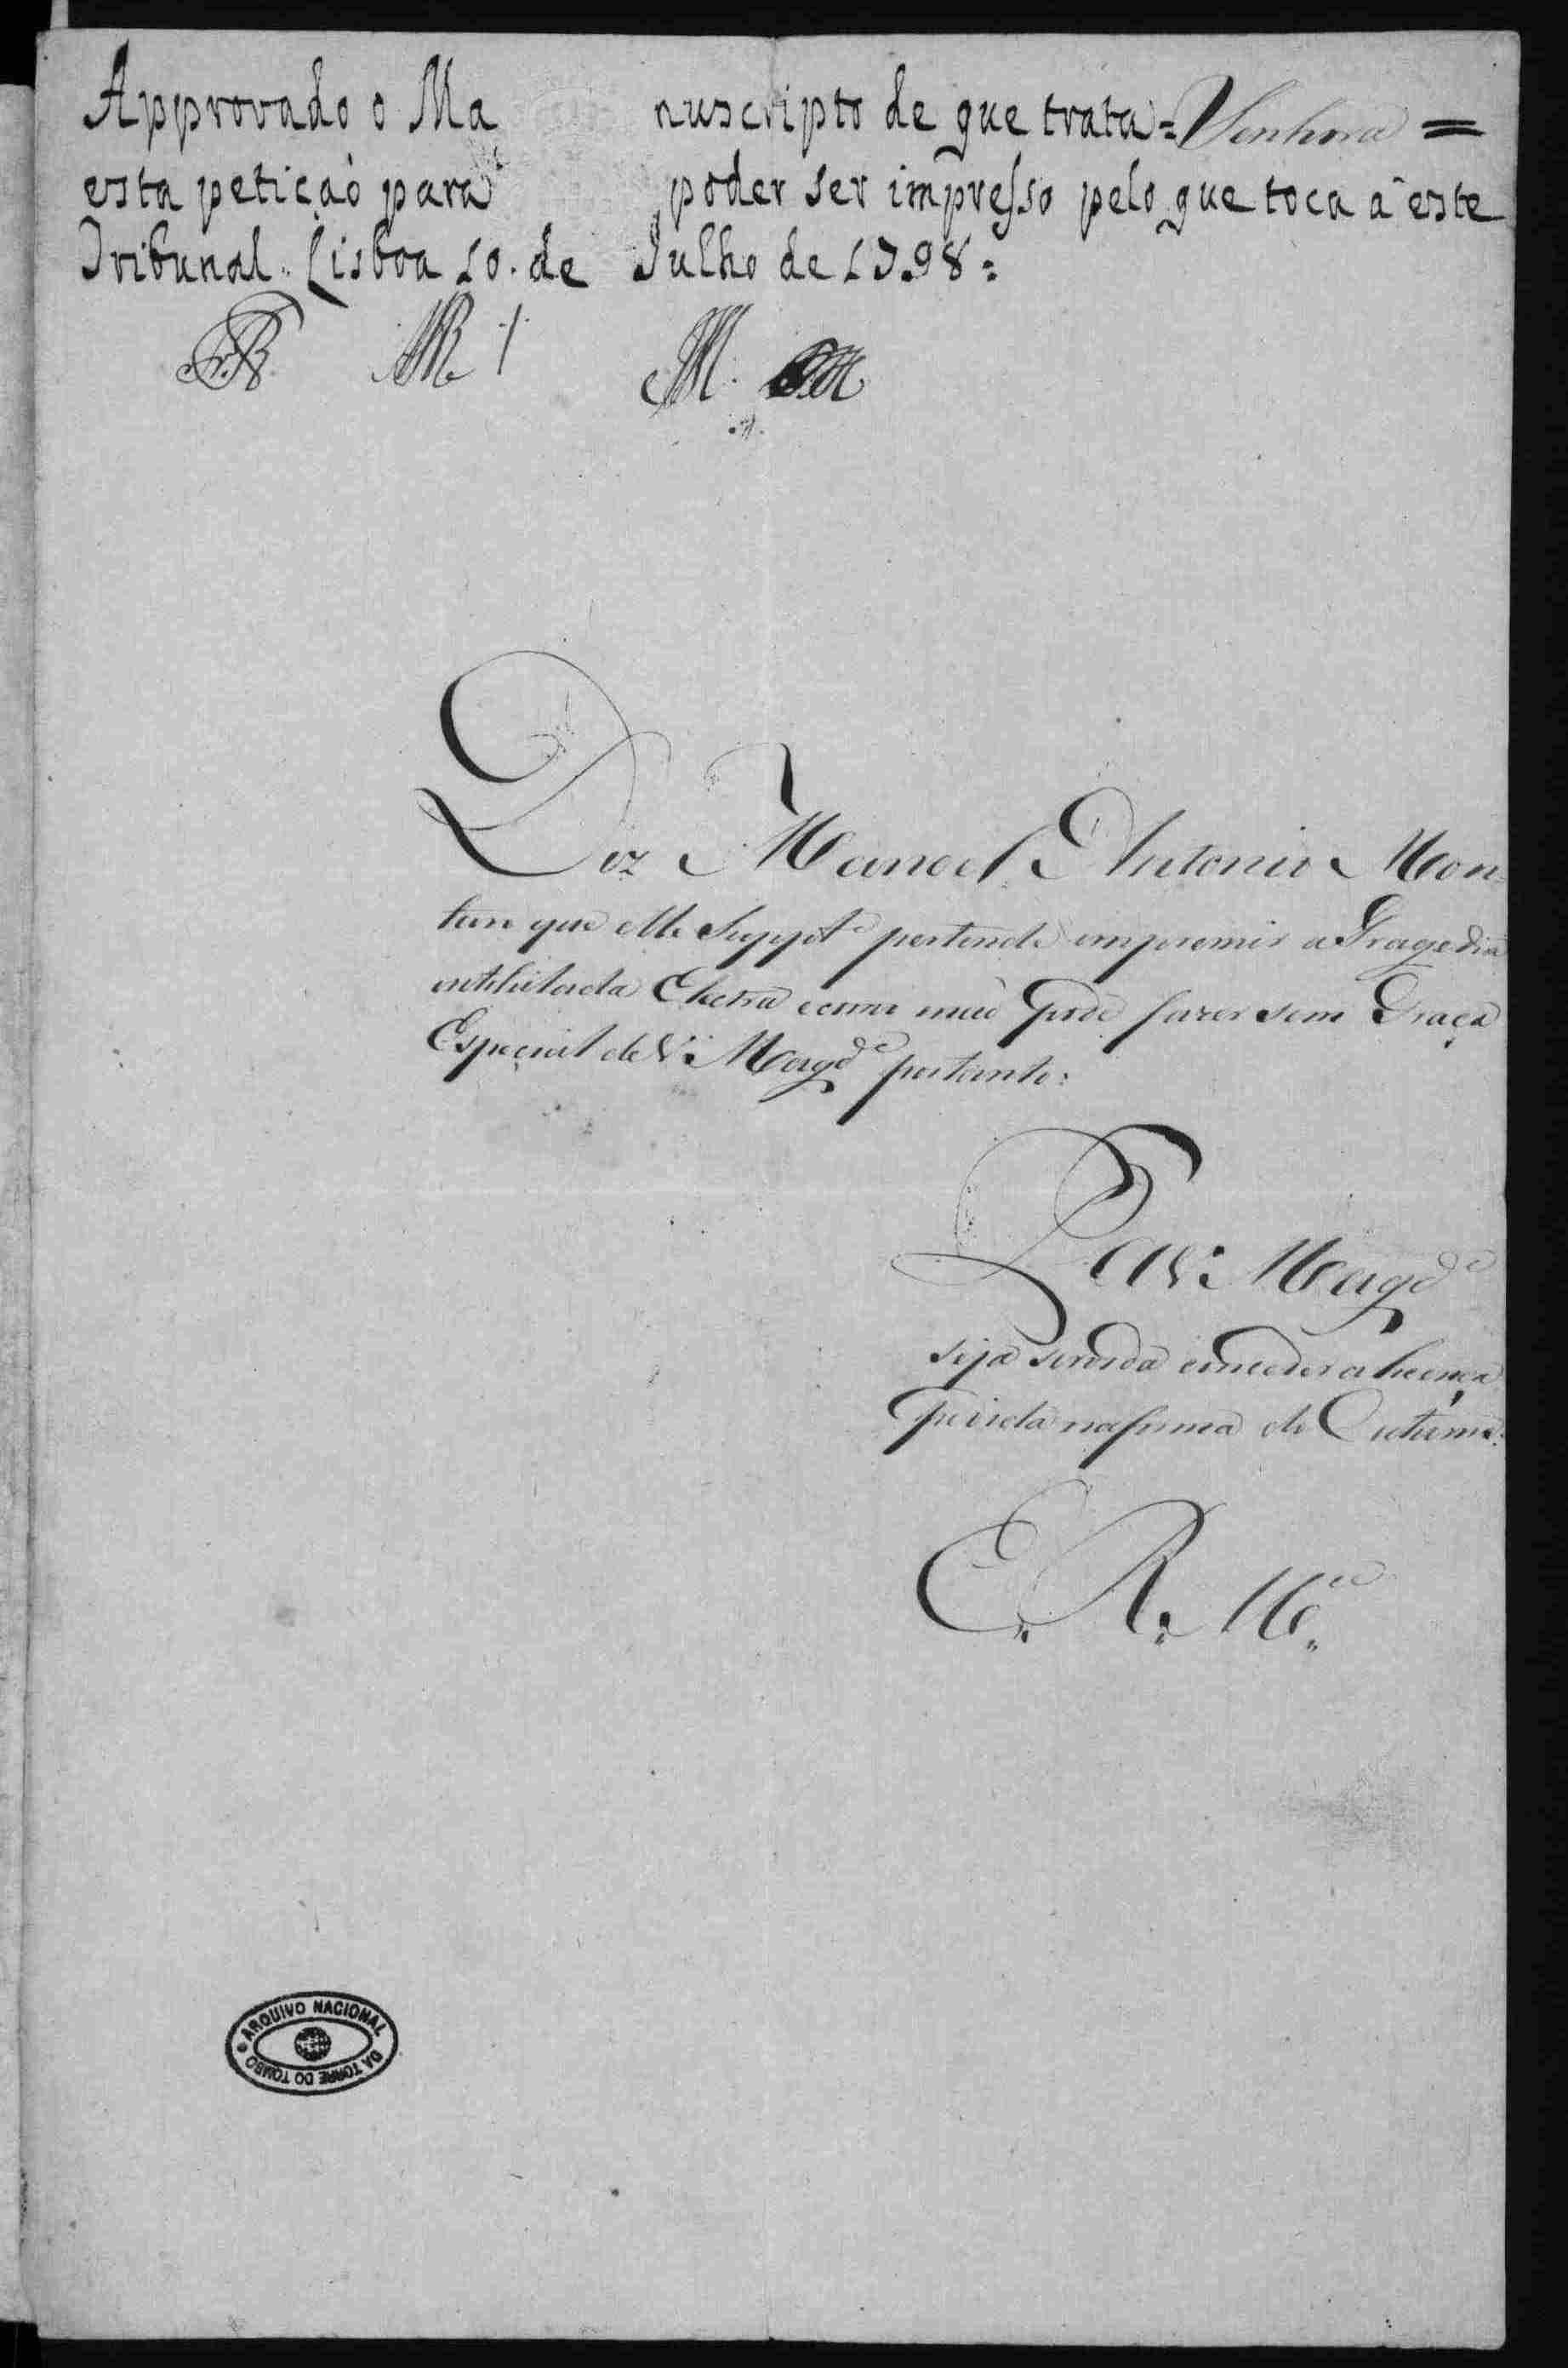 Approvado o Manuscripto de que trata = Senhora =
esta petiçaò para poder ser impresso pelo que toca a este
Tribunal. Lisboa 10. de Julho de 1798:
Diz Manoel Antonio Mon-
que elle Supp.te pertende impremir a Tragedia
intitulada Electra e como naõ pode fazer sem Graça
Especial de V. Mag.de portanto:
P. a V. Mag.de
seja servida conceder a licença
pedida na forma do Custume.
E. R. M.ce
ARQUIVO NACIONAL DA TORRE DO TOMBO